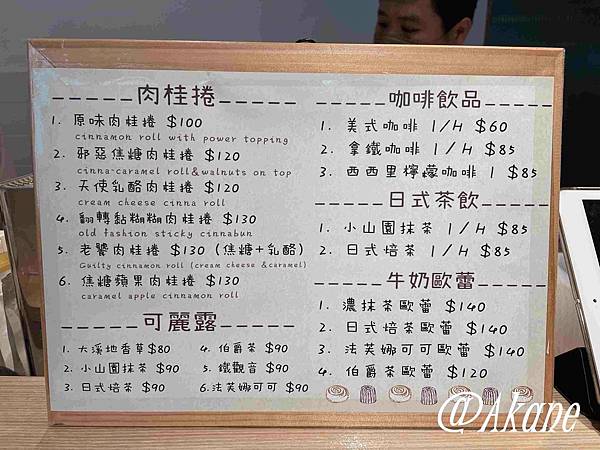 肉桂捲
1. 原味肉桂捲 $100
cinnamon roll with power topping
2. 邪惡焦糖肉桂捲 $120
cinna-caramel roll&walnuts on top
3. 天使乳酪肉桂捲 $120
cream cheese cinna roll
4. 翻轉黏糊糊肉桂捲 $130
old fashion sticky cinnabun
5. 老饕肉桂捲 $130 (焦糖+乳酪)
Guilty cinnamon roll (cream cheese &caramel)
6. 焦糖蘋果肉桂捲 $130
caramel apple cinnamon roll
可麗露
1. 大溪地香草 $80
2. 小山園抹茶 $90
3. 日式焙茶 $90
4. 伯爵茶 $90
5. 鐵觀音 $90
6. 法芙娜可可 $90
咖啡飲品
1. 美式咖啡 I/H $60
2. 拿鐵咖啡 I/H $85
3. 西西里檸檬咖啡 I $85
日式茶飲
1. 小山園抹茶 I/H $85
2. 日式焙茶 I/H $85
牛奶歐蕾
1. 濃抹茶歐蕾 $140
2. 日式焙茶歐蕾 $140
3. 法芙娜可可歐蕾 $140
4. 伯爵茶歐蕾 $120
@Akane